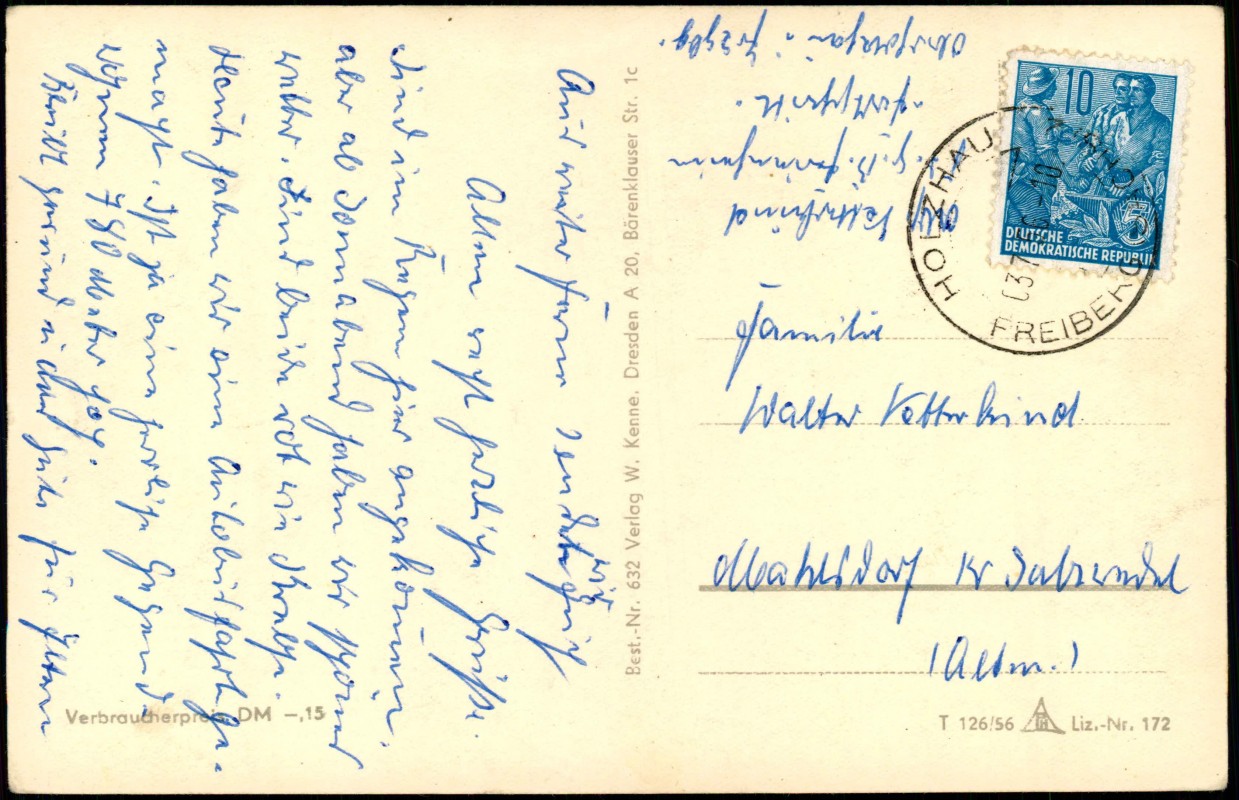 Aus weiter Ferne senden wir Euch
Allen recht herzliche Grüße.
Sind im Regen hier angekommen,
aber ab Sonnabend haben wir schönes
Wetter. Sind beide rot wie Krebse.
Heute haben wir eine Autobusfahrt ge-
macht. Ist ja eine herrliche Gegend.
Wohnen 780 Meter hoch.
Bleibt gesund u. alles Gute für Eltern
Verbraucherpreis DM –,15
Best.-Nr. 632 Verlag W. Kenne. Dresden A 20, Bärenklauser Str. 1c
10
5
DEUTSCHE
DEMOKRATISCHE REPUBLIK
HOLZHAU
FREIBERG
Familie
Walter Vetterkind
Mahlsdorf Kr Salzwedel
(Altm.)
Vetterkind
T 126/56 Liz.-Nr. 172